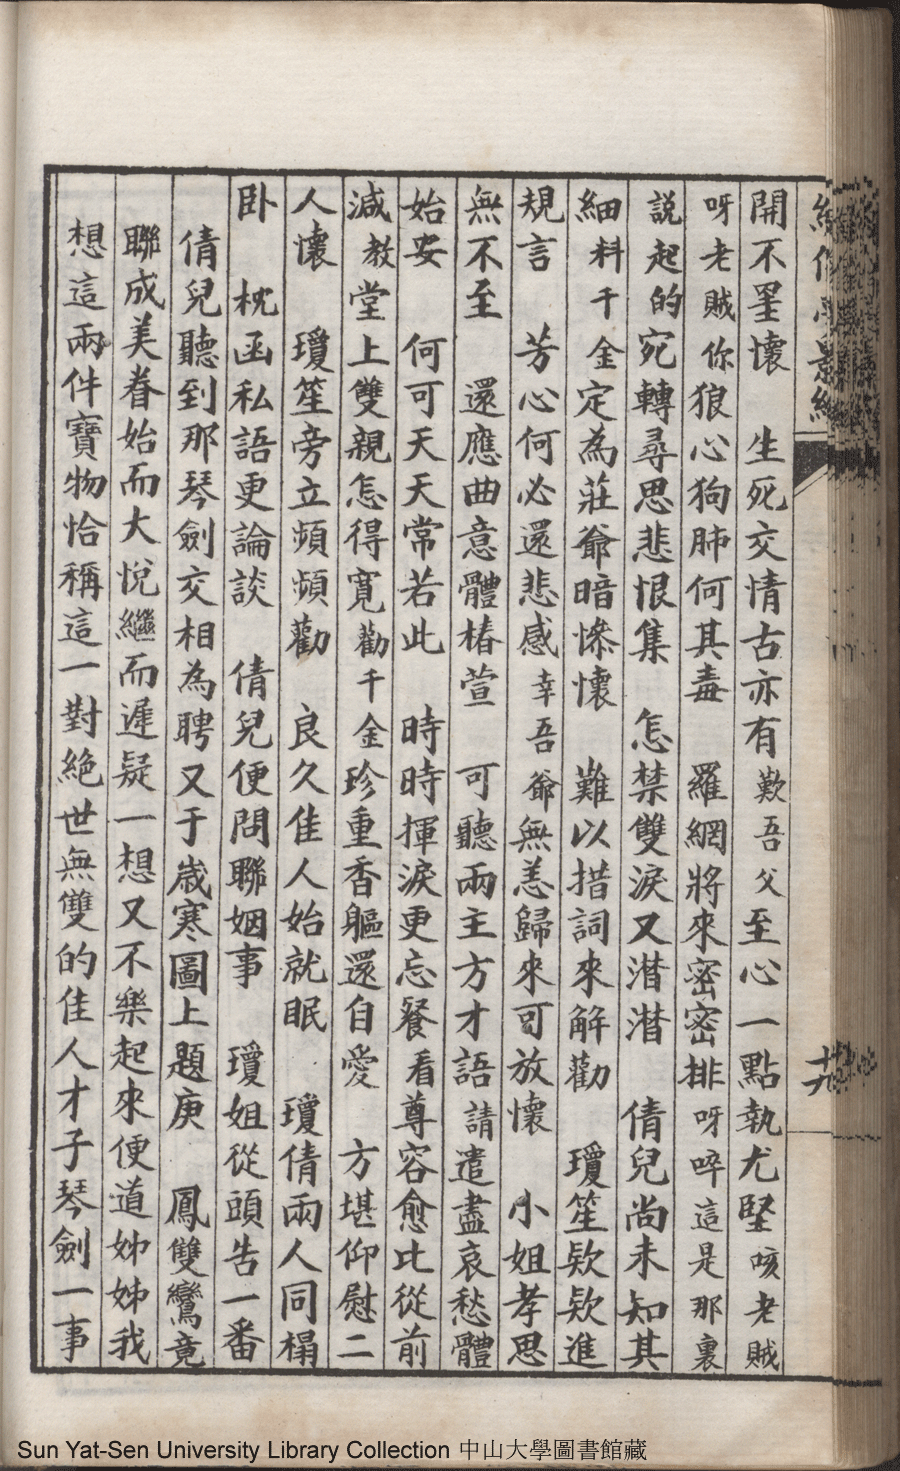 開不罣懷　生死交情古亦有歎吾父至心一點執尤堅咳老賊
呀老賊你狼心狗肺何其毒　羅網將來密密排呀啐這是那裏
説起的宛轉尋思悲恨集　怎禁雙淚又潸潸　倩兒尚未知其
細料千金定為莊爺暗慘懷　難以措詞來解勸　瓊笙欵欵進
規言　芳心何必還悲感幸吾爺無恙歸來可放懷　小姐孝思
無不至　還應曲意體椿萱　可聽兩主方才語請遣盡哀愁體
始安　何可天天常若此　時時揮淚更忘餐看尊容愈比從前
減教堂上雙親怎得寬勸千金珍重香軀還自愛　方堪仰慰二
人懷　瓊笙旁立頻頻勸　良久佳人始就眠　瓊倩兩人同榻
卧　枕函私語更論談　倩兒便問聯姻事　瓊姐從頭告一番
倩兒聽到那琴劍交相為聘又于歲寒圖上題庚　鳳雙鸞竟
聯成美眷始而大悅繼而遲疑一想又不樂起來便道姊姊我
想這兩件寶物恰稱這一對絕世無雙的佳人才子琴劍一事
十九
Sun Yat-Sen University Library Collection 中山大學圖書館藏